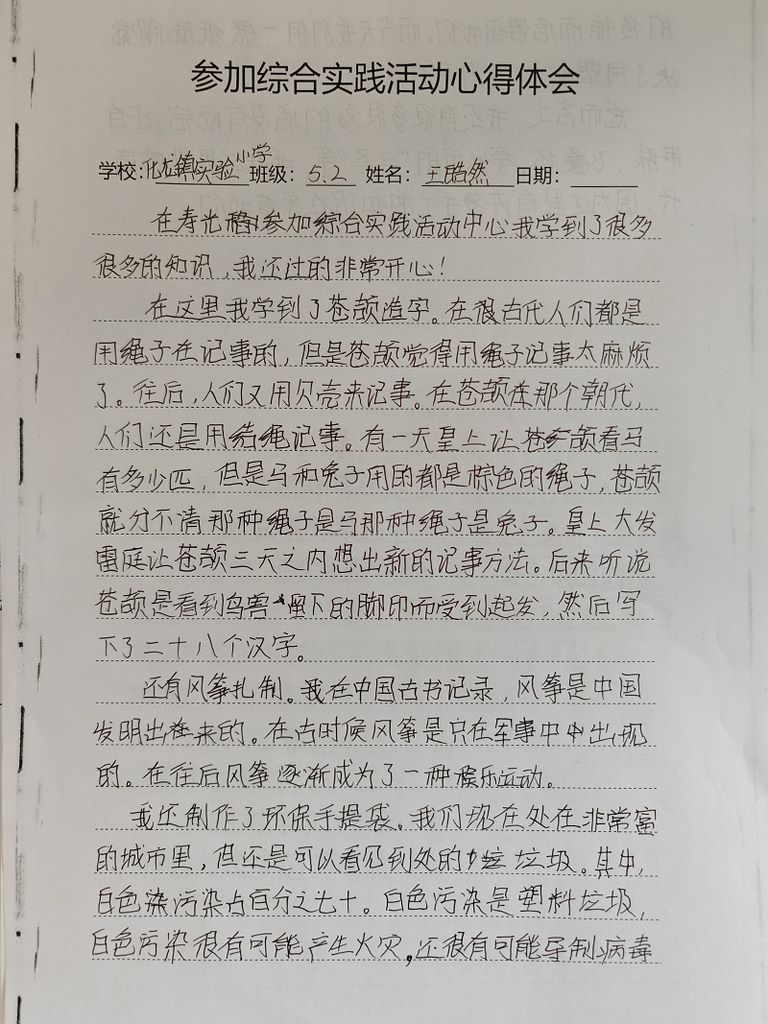 参加综合实践活动心得体会
学校:化龙镇实验小学 班级: 5.2 姓名: 王皓然 日期:
在寿光参加综合实践活动中心我学到了很多
很多的知识，我还过的非常开心！
在这里我学到了苍颉造字。在很古代人们都是
用绳子在记事的，但是苍颉觉得用绳子记事太麻烦
了。往后，人们又用贝壳来记事。在苍颉在那个朝代，
人们还是用结绳记事。有一天皇上让苍颉看马
有多少匹，但是马和兔子用的都是棕色的绳子，苍颉
就分不清那种绳子是马那种绳子是兔子。皇上大发
雷庭让苍颉三天之内想出新的记事方法。后来听说
苍颉是看到鸟兽留下的脚印而受到起发，然后写
下了二十八个汉字。
还有风筝扎制。我在中国古书记录，风筝是中国
发明出来的。在古时候风筝是只在军事中出现
的。在往后风筝逐渐成为了一种娱乐运动。
我还制作了环保手提袋。我们现在处在非常富
的城市里，但还是可以看见到处的垃圾。其中，
白色染污染占百分之七十。白色污染是塑料垃圾，
白色污染很有可能产生火灾，还很有可能导制病毒